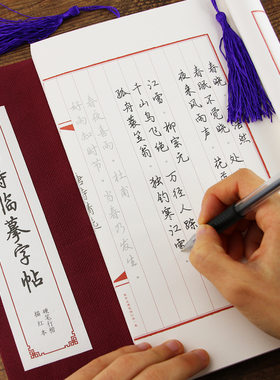 春晓 浩然
春眠不觉晓 处
夜来风雨声 花
江雪 柳宗元
千山鸟飞绝 万径人踪
孤舟蓑笠翁 独钓寒江雪
春夜喜雨 杜甫
好雨知时节 当春乃发生
诗临摹字帖
硬笔行楷
描红本